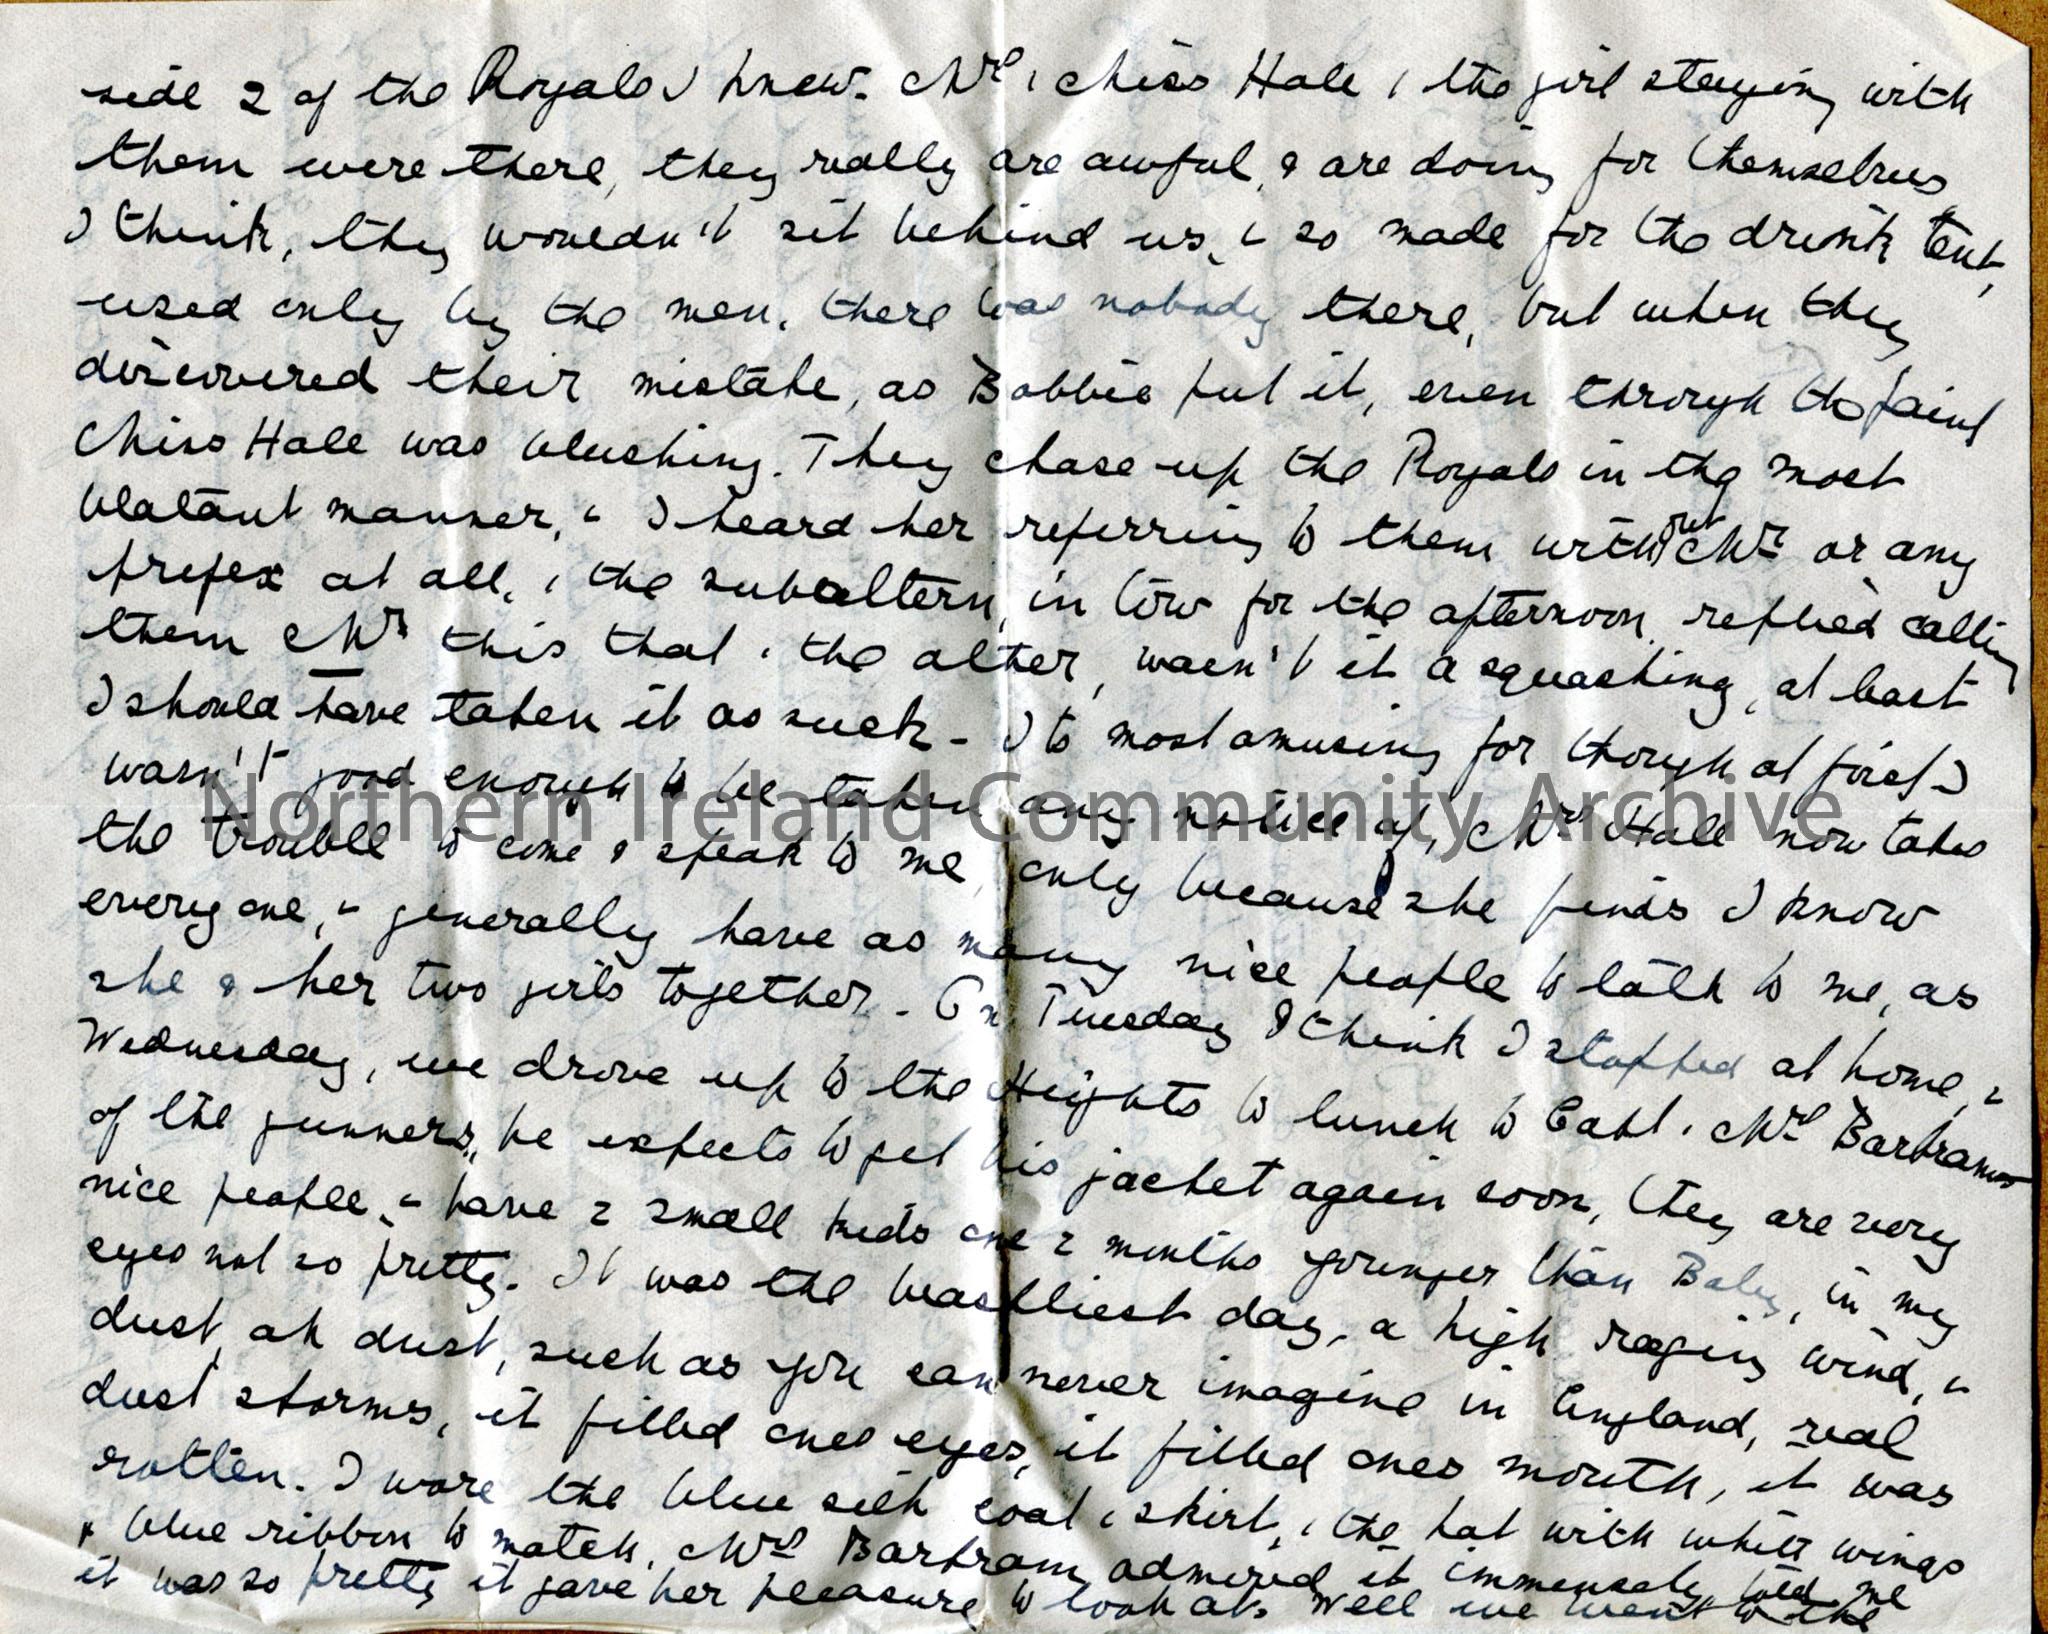 side 2 of the Royals I knew. Mrs & Miss Hall & the girl staying with
them were there, they really are awful, & are doing for themselves
I think, they wouldn't sit behind us, & so made for the drink tent,
used only by the men, there was nobody there, but when they
discovered their mistake, as Bobbie put it, even through the paint
Miss Hall was blushing. They chase up the Royals in the most
blatant manner, & I heard her referring to them without Mr or any
prefex at all, & the subaltern, in tow for the afternoon, replied calling
them Mr this that & the other, wasn't it a squashing, at least
I should have taken it as such - Its most amusing for though at first I
wasn't good enough to be taken any notice of, Mrs Hall now takes
the trouble to come & speak to me, only because she finds I know
everyone, & generally have as many nice people to talk to me, as
she & her two girls together. On Tuesday I think I stopped at home, &
Wednesday, we drove up to the Heights to lunch to Capt & Mrs Bartrams
of the gunners, he expects to get his jacket again soon, they are very
nice people, & have 2 small kids one 2 months younger than Baby, in my
eyes not so pretty. It was the beastliest day, a high raging wind, &
dust, oh dust, such as you can never imagine in England, real
dust storms, it filled ones eyes, it filled ones mouth, it was
rotten. I wore the blue silk coat & skirt, & the hat with white wings
& blue ribbon to match, Mrs Bartram admired it immensely, told me
it was so pretty it gave her pleasure to look at. Well we went to the
Northern Ireland Community Archive